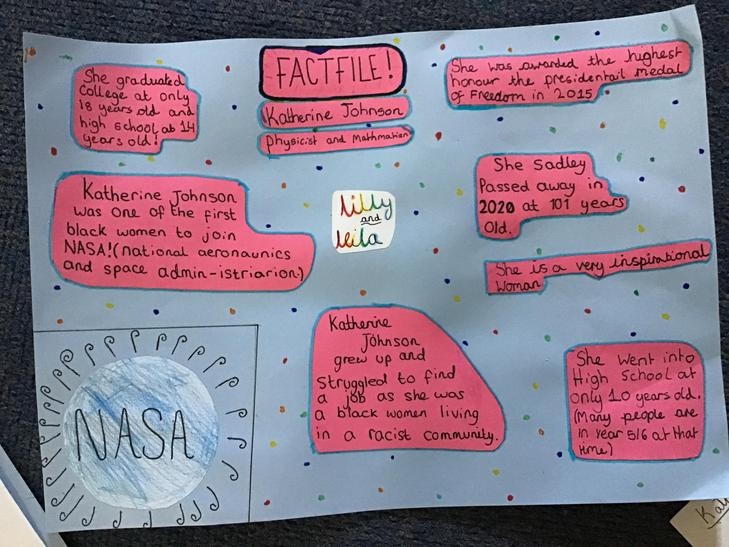 FACTFILE!
Katherine Johnson
Physicist and Mathmatician
She graduated
College at only
18 years old and
high school at 14
years old!
She was awarded the highest
honour the presidentail medal
of Freedom in 2015
Katherine Johnson
was one of the first
black women to join
NASA!(national aeronaunics
and space admin-istriarion)
Lilly
and
leila
She Sadley
Passed away in
2020 at 101 years
old.
She is a very inspirational
woman
NASA
Katherine
Johnson
grew up and
Struggled to find
a job as she was
a black women living
in a racist community.
She went into
High School at
only 10 years old.
(Many people are
in Year 5/6 at that
time)